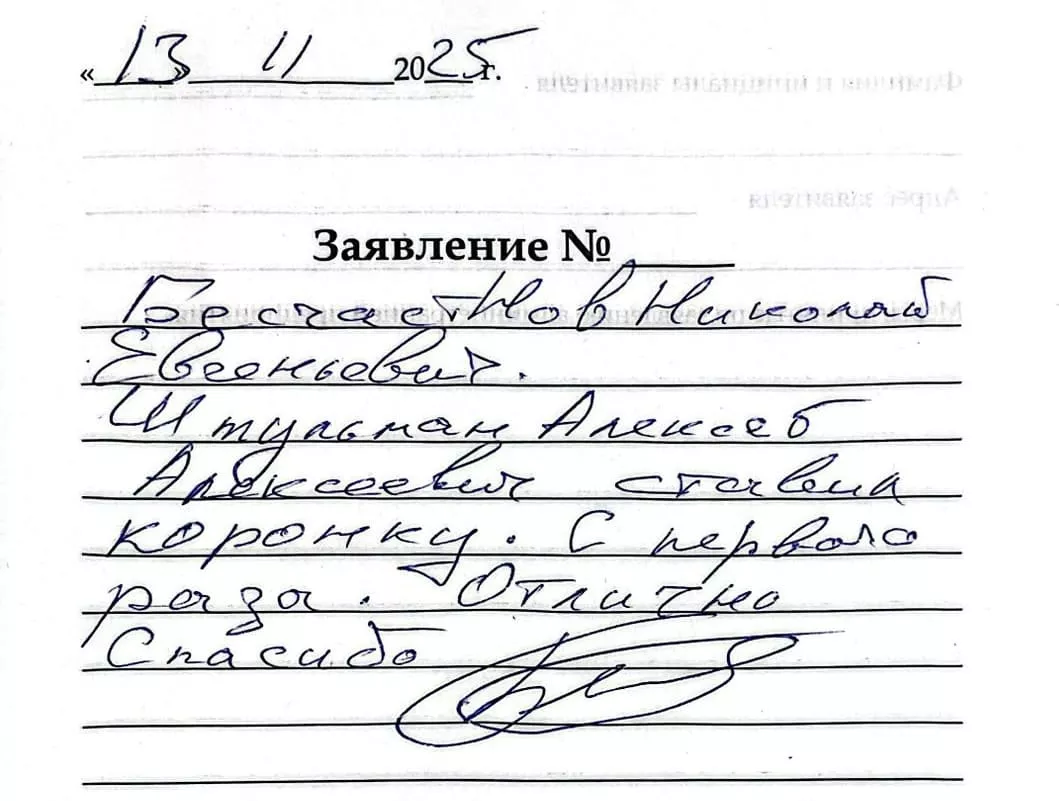 «13» 11 2025 г.
Заявление № ____
Бесчастнов Николай
Евгеньевич.
Штульман Алексей
Алексеевич ставил
коронку. С первого
раза. Отлично
Спасибо